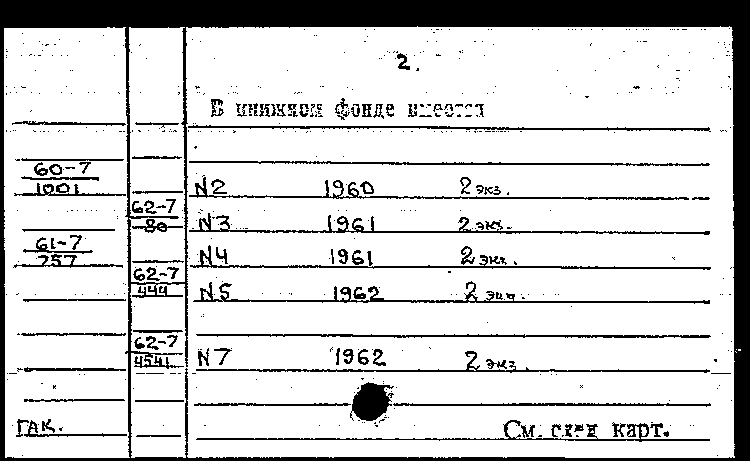 2.
В книжном фонде имеется
60-7
1001 N2 1960 2 экз.
62-7
80 N3 1961 2 экз.
61-7
757 N4 1961 2 экз.
62-7
444 N5 1962 2 экз.
62-7
4541 N7 1962 2 экз.
ГАК. См. след карт.